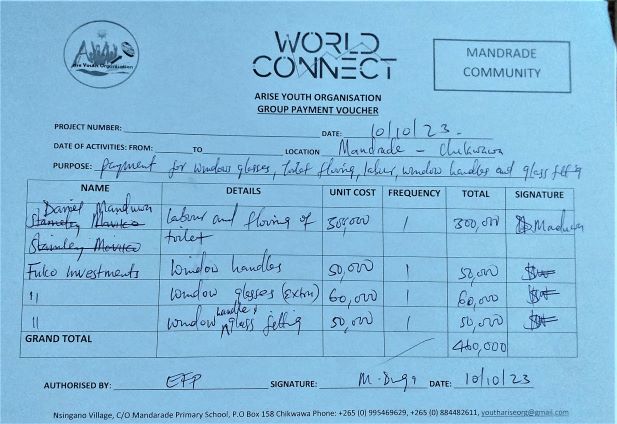 Arise Youth Organisation
WORLD
CONNECT
MANDRADE
COMMUNITY
ARISE YOUTH ORGANISATION
GROUP PAYMENT VOUCHER
PROJECT NUMBER: DATE: 10/10/23.
DATE OF ACTIVITIES: FROM: TO LOCATION Mandrade - Chikwawa
PURPOSE: Payment for window glasses, toilet floring, labur, window handles and glass fettig
NAME DETAILS UNIT COST FREQUENCY TOTAL SIGNATURE
Daniel
Stanley Mavika Labour and floring of 300,000 1 300,000
Stanley Mavika toilet
Fulco Investments window handles 50,000 1 50,000
11 window glasses (Extra) 60,000 1 60,000
handle &
11 window glass fettig 50,000 1 50,000
GRAND TOTAL 460,000
AUTHORISED BY: EFP SIGNATURE: DATE: 10/10/23
Nsingano Village, C/O Mandarade Primary School, P.O Box 158 Chikwawa Phone: +265 (0) 995469629, +265 (0) 884482611, youthariseorg@gmail.com